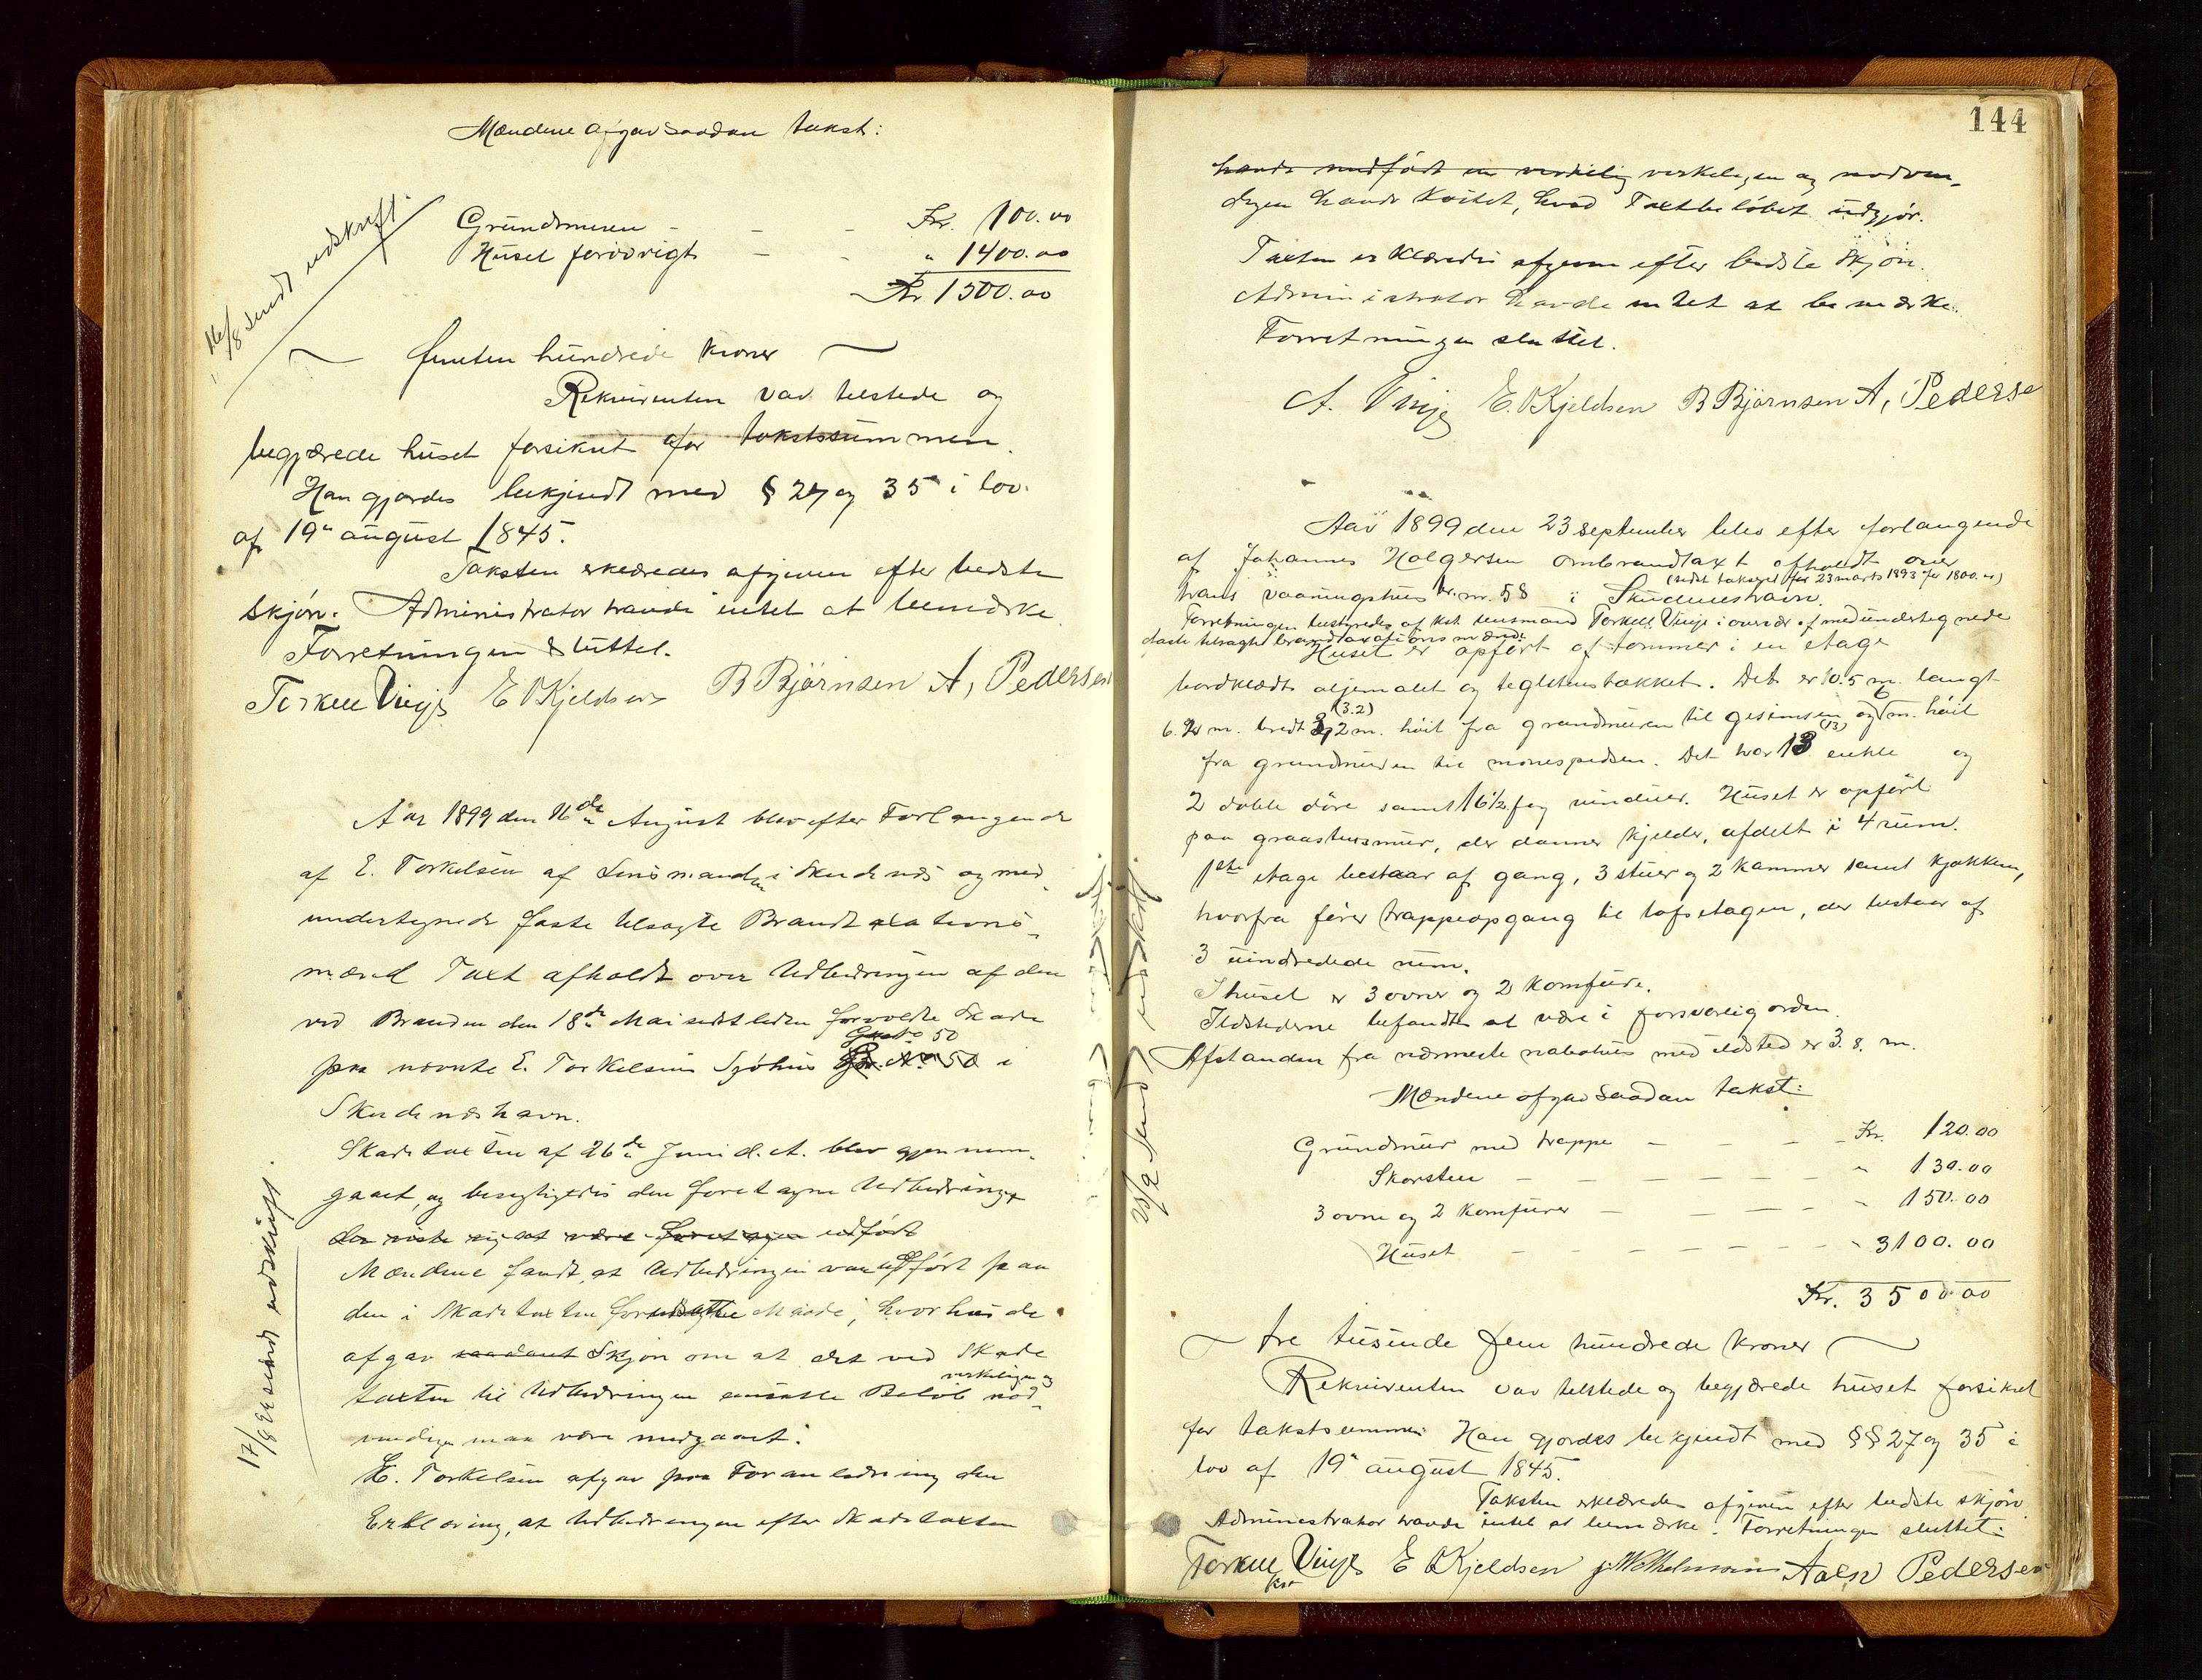 Mændene afgav saadan takst:
16/8 sendt udskrift.
Grundmuren - - - Kr. 100.00
Huset forøvrigt - - " 1400.00
Kr 1500.00
~ femten hundrede kroner ~
Rekvirenten var tilstede og
begjærede huset forsikret for takstsummen.
Han gjordes bekjendt med § 27 og 35 i lov
af 19de august 1845.
Taksten erklæredes afgiven efter bedste
skjøn. Administrator havde intet at bemærke
Forretningen sluttet.
Torkell Vinje E O Kjeldsen B Bjørnsen A, Pedersen
Aar 1899 den 16de August blev efter Forlangende
af E. Torkelsen af Lensmanden i Skudenes og med-
undertegnede faste tilsagte Brandtaxations-
mænd Taxt afholdt over Udbedringen af den
ved Branden den 18de Mai sidstleden forvoldte Skade
Gaard 50
paa nævnte E. Torkelsens Sjøhus Br. No. 50 i
Skudeneshavn.
Skadetaxten af 26de Juni d. A. blev gjennem-
gaaet, og besigtigedes den foretagne Udbedring
der viste sig at være foretagen udført
Mændene fandt, at Udbedringen var udført paa
den i Skadetaxten forudsatte Maade, hvorhos de
afgav saadant Skjøn om at det ved Skade
virkeligen og
taxten til Udbedringen ansatte Beløb nød-
vendigen maa være medgaaet.
E. Torkelsen afgav paa Foranledning den
Erklæring, at Udbedringen efter Skadetaxten
17/8 99 sendt udskrift.
144
havde medført en virkelig virkeligen og nødven-
digen havde kostet, hvad Taxtbeløbet udgjør.
Taxten erklæredes afgiven efter bedste Skjøn.
Administrator havde intet at bemærke.
Forretningen sluttet.
A. Vinje E. O Kjeldsen B Bjørnsen A, Pederse
Aar 1899 den 23 september blev efter forlangende
af Johannes Holgersen ombrandtaxt afholdt over
(sidst takseret før 23 marts 1893 for 1800. kr)
hans vaaningshus br. nr. 58 i Skudeneshavn.
Forretningen bestyredes af kst. lensmand Torkell Vinje i overvær af medundertegnede
faste tilsagte brandtaxationsmænd.
Huset er opført af tømmer i en etage
bordklædt oljemalet og teglstenstækket. Det er 10.5 m. langt
(3.2)
6. m. bredt 3,2 m. høit fra grundmuren til gesimsen og 6 m. høit
(13)
fra grundmuren til mønespidsen. Det har 13 enkle og
2 doble døre samt 16½ fag vinduer. Huset er opført
paa graastensmur, der danner kjelder, afdelt i 4 rum.
1ste etage bestaar af gang, 3 stuer og 2 kammer samt kjøkken,
hvorfra fører trappeopgang til loftsetagen, der bestaar af
3 uindredede rum.
I huset er 3 ovner og 2 komfure.
Ildstederne befandtes at være i forsvarlig orden.
Afstanden fra nærmeste nabohus med ildsted er 3.8. m.
Mændene afgav saadan takst:
Grundmur med trappe - - - - Kr. 120.00
Skorsten - - - - - - " 130.00
3 ovne og 2 komfurer - - - - " 150.00
Huset - - - - - - " 3100.00
Kr. 3500.00
~ tre tusinde fem hundrede kroner ~
Rekvirenten var tilstede og begjærede huset forsikret
for takstsummen. Han gjordes bekjendt med §§ 27 og 35 i
lov af 19de august 1845.
Taksten erklæredes afgiven efter bedste skjøn
Administrator havde intet at bemærke. Forretningen sluttet.
Torkell Vinje E O Kjeldsen J. Wilhelmsen Aaen Pedersen
kst
25/9 sendt udskrift